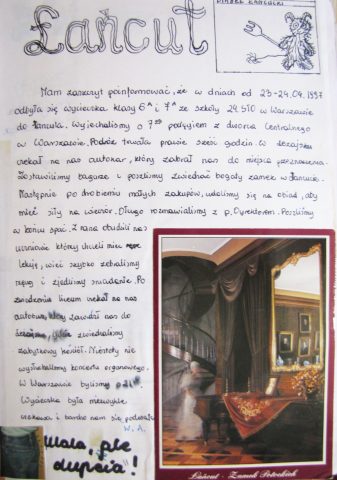 Łańcut
DIABEŁ ŁAŃCUCKI
Mam zaszczyt poinformować, że w dniach od 23-24.04.1997
odbyła się wycieczka klasy 6A i 7A ze szkoły 24.STO w Warszawie
do Łańcuta. Wyjechaliśmy o 7 pociągiem z dworca Centralnego
w Warszawie. Podróż trwała prawie sześć godzin. W Leżajsku
czekał na nas autokar, który zabrał nas do miejsca przeznaczenia.
Zostawiliśmy bagaże i poszliśmy zwiedzać bogaty zamek w Łańcucie.
Następnie po zrobieniu małych zakupów, udaliśmy się na obiad, aby
mieć siły na wieczór. Długo rozmawialiśmy z p. Dyrektorem. Poszliśmy
w końcu spać. Z rana obudzili nas
uczniowie którzy chcieli mieć
lekcję, więc szybko zebraliśmy
i zjedliśmy śniadanie. Po
zwiedzeniu liceum czekał na nas
autobus, który zawiózł nas do
Leżajska, gdzie zwiedzaliśmy
zabytkowy kościół. Niestety nie
wysłuchaliśmy koncertu organowego.
W Warszawie byliśmy o 21
Wycieczka była niezwykle
ciekawa i bardzo nam się podobała
W. A.
Mała, ale
dupcia!
Łańcut - Zamek Potockich